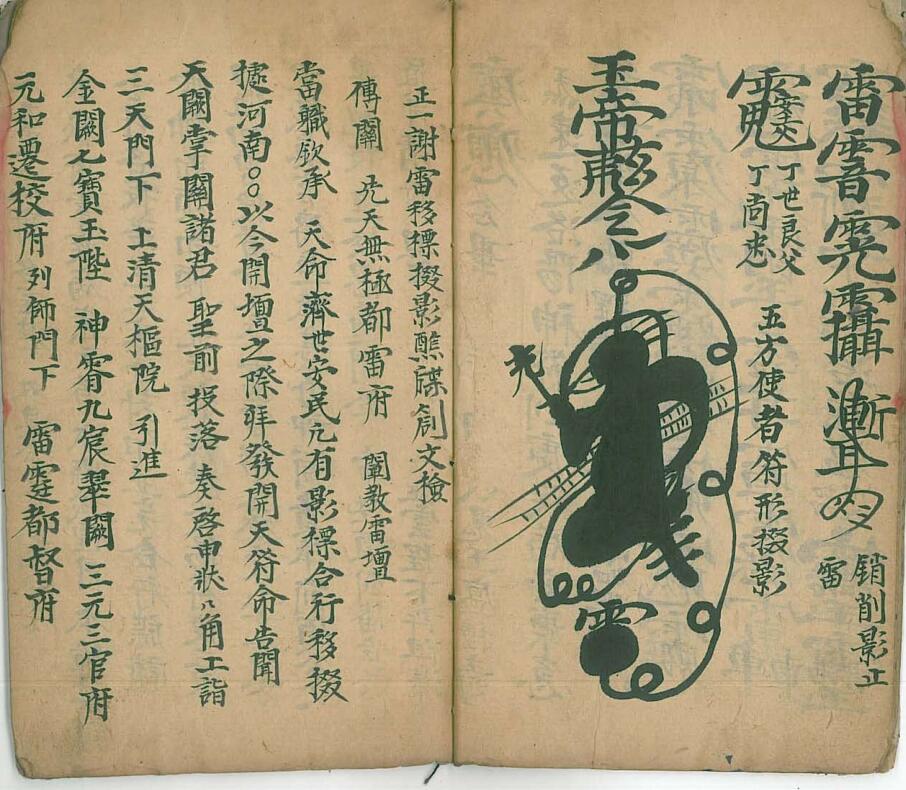 雷
銷削影止
雷
丁世良父
丁尚
五方使者符形掇影
玉帝
令
正一謝雷移標掇影醮牒劄文檢
傳闡 先天無極都雷府 闡教雷壇
當職欽承 天命濟世安民凡有影標合行移掇
據河南〇〇以今開壇之際拜發開天符命告聞
天闕掌闕諸君 聖前投落 奏啓申狀八角上詣
三天門下 上清天樞院 引進
金闕七寶玉陛 神霄九宸翠闕 三元三官府
元和遷校府列師門下 雷霆都督府